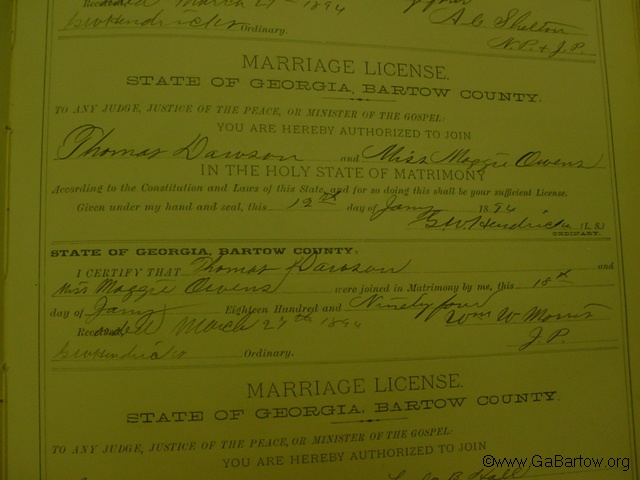 Recorded March 27 - 1894
GW Hendricks Ordinary.
A C Shelton
N.P. & J.P.
MARRIAGE LICENSE.
STATE OF GEORGIA, BARTOW COUNTY.
TO ANY JUDGE, JUSTICE OF THE PEACE, OR MINISTER OF THE GOSPEL:
YOU ARE HEREBY AUTHORIZED TO JOIN
Thomas Dawson and Miss Maggie Owens
IN THE HOLY STATE OF MATRIMONY
According to the Constitution and Laws of this State, and for so doing this shall be your sufficient License.
Given under my hand and seal, this 12th day of Jany 1894
GW Hendricks (L. S.)
ORDINARY.
STATE OF GEORGIA, BARTOW COUNTY.
I CERTIFY THAT Thomas Dawson and
Miss Maggie Owens were joined in Matrimony by me, this 18th
day of Jany Eighteen Hundred and Ninety four
Recorded March 27th 1894 Wm W Morris
GW Hendricks Ordinary. J P.
MARRIAGE LICENSE.
STATE OF GEORGIA, BARTOW COUNTY.
TO ANY JUDGE, JUSTICE OF THE PEACE, OR MINISTER OF THE GOSPEL:
YOU ARE HEREBY AUTHORIZED TO JOIN
Hall
©www.GaBartow.org